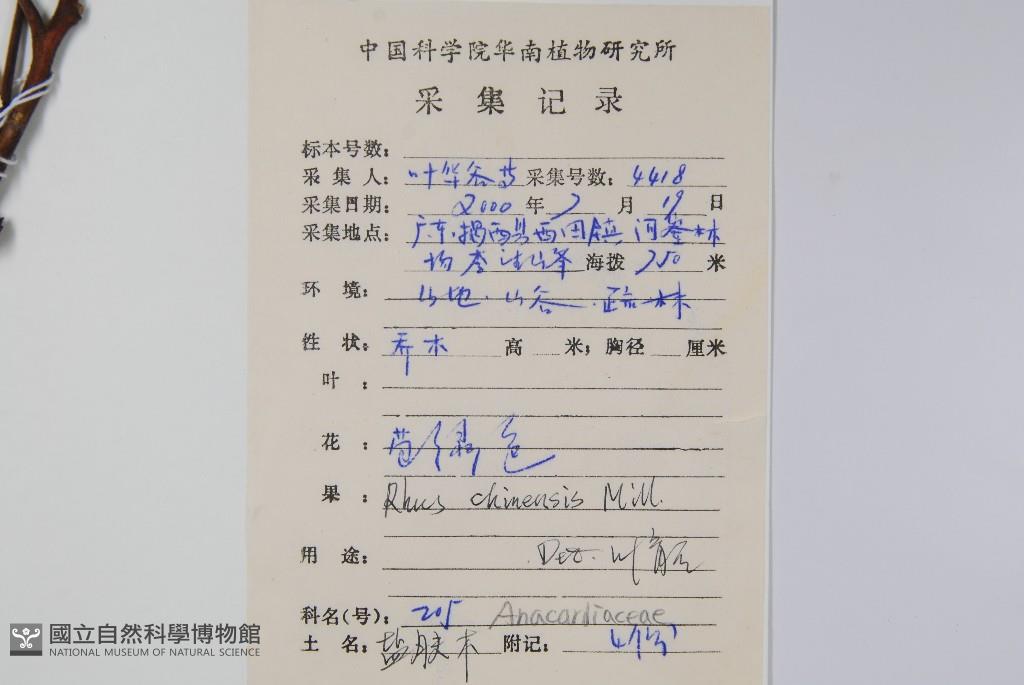 中国科学院华南植物研究所
采集记录
标本号数：
采集人：叶华谷等 采集号数：4418
采集日期：2000年7月19日
采集地点：广东.揭西县西田镇 河
海拔 750 米
环境：山地.山谷.疏林
性状：乔木 高 米；胸径 厘米
叶：
花：绿色
果：Rhus chinensis Mill.
用途：Det. 叶育石
科名(号)：205 Anacardiaceae
土名：盐肤木 附记：4份
國立自然科學博物館
NATIONAL MUSEUM OF NATURAL SCIENCE